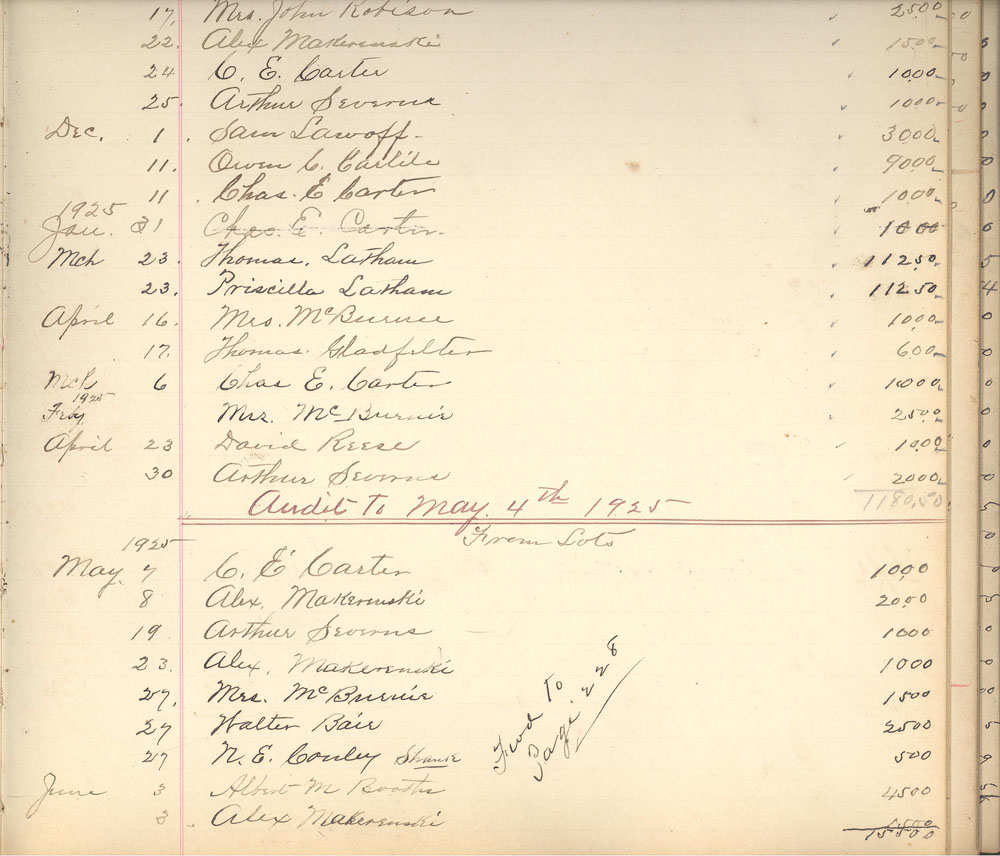 17. Mrs. John Robison 2500
22. Alex Makerenski 1500
24 C. E. Carter 1000
25. Arthur Severns 1000
Dec. 1. Sam Lawoff 3000
11. Owen C. Carlile 9000
11. Chas. E Carter 1000
1925
Jan. 31 Chas. E. Carter. 1000
Mch 23. Thomas. Latham 11250
23. Priscilla Latham 11250
April 16. Mrs. McBurnie 1000
17. Thomas. Gladfelter 600
Mch 6 Chas E. Carter 1000
1925
Feby. Mrs. McBurnie 2500
April 23 David Reese 1000
30 Arthur Severns 2000
1180.50
Audit To May. 4th 1925
From Lots
1925
May. 7 C. E Carter 1000
8 Alex. Makerenski 2000
19 Arthur Severns 1000
23. Alex. Makerenski 1000
27. Mrs. McBurnie 1500
27 Walter Bair 2500
27 N. E. Conley 500
Fwd To
Page. 228
June 3 Albert M Booths 4500
3 Alex Makerenski 1500
15500